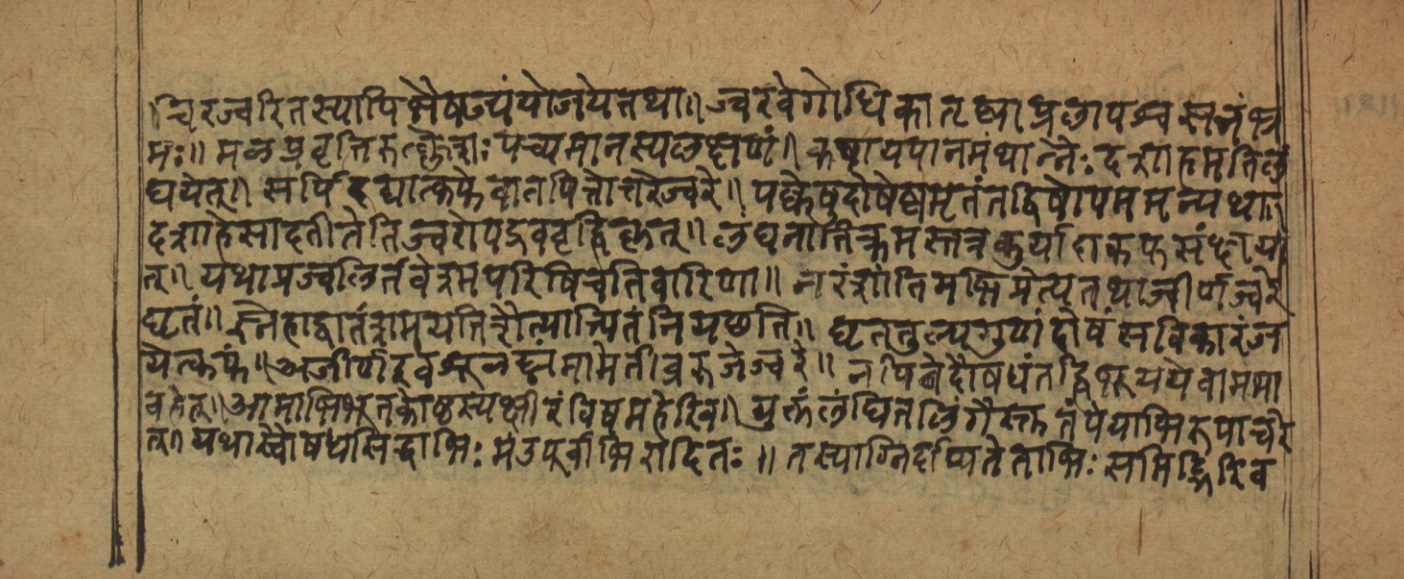 चिरज्वरितस्यापि भैषज्यं योजयेत्तथा॥ ज्वरवेगोधिकातृष्णाप्रलापश्वसनंभ्र
मः॥ मलप्रवृत्तिरुत्क्लेशः पच्यमानस्यलक्षणं॥ कषायपानमंथान्नैः दशाहमतिलं
घयेत्॥ सर्पिर्दद्यात्कफेवातपित्तोत्तरेज्वरे॥ पक्वेषुदोषेष्वमृतंतद्विषोपममन्यथा॥
दशाहेस्यादतीतेतिज्वरोपद्रववृद्धिकृत्॥ लंघनादिक्रमस्तत्रकुर्याताकफसंक्षया
त्॥ यथाप्रज्वलितंवेश्मपरिषिंचंतिवारिणा॥ नरंशांतिमभिप्रेत्यतथाजीर्णज्वरे
घृतं॥ स्नेहाद्वातंशमयतिशैत्यात्पित्तंनियछति॥ घृतंतुल्यगुणंदोषंसविकारंज
येत्कफं॥ अजीर्णइवशूलघ्नंसामेतीव्ररुजेज्वरे॥ नपिबेदौषधंतद्धिभूययेवाममा
वहेत्॥ आमाभिभूतकोष्ठस्यक्षीरंविषमहेरिव॥ युक्तंलंघितलिंगैस्तुतंपेयाभिरुपाचरे
त्॥ यथास्वौषधसिद्धाभिः मंडपूर्वाभिरादितः॥ तस्याग्निर्दीप्यतेताभिः समिद्भिरिव